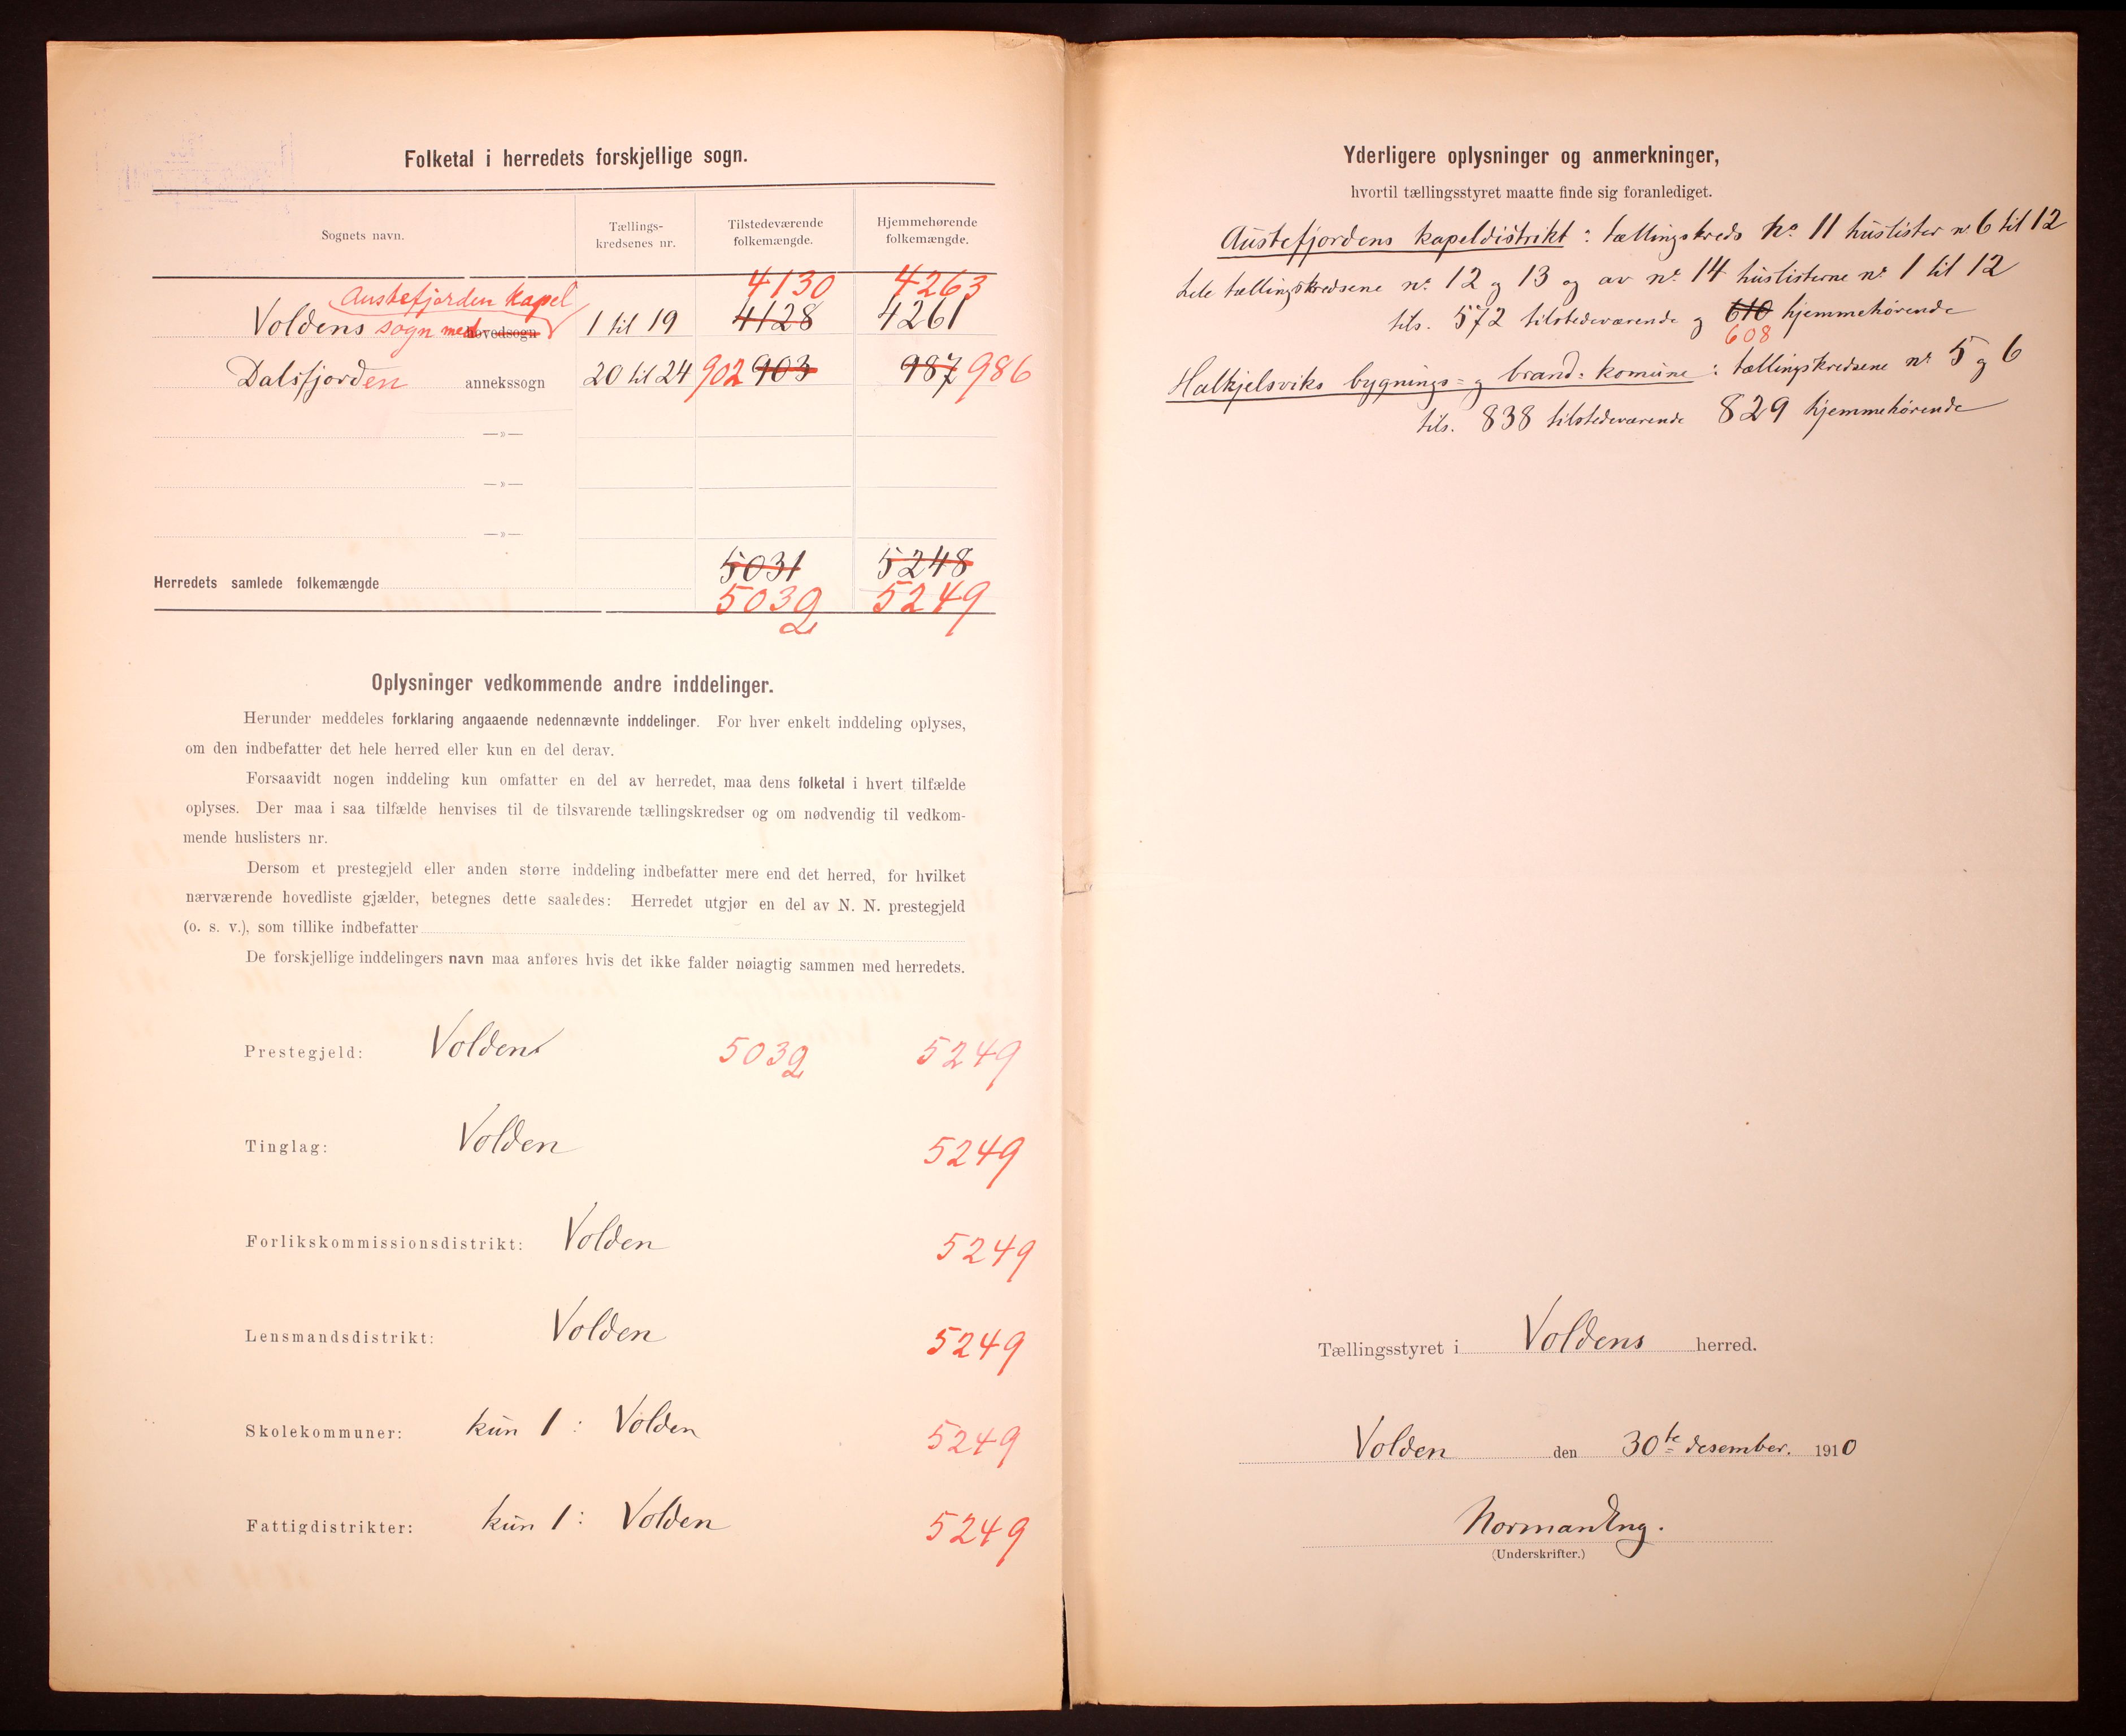 Folketal i herredets forskjellige sogn.
Sognets navn.
Tællings-
kredsenes nr.
Tilstedeværende
folkemængde.
Hjemmehørende
folkemængde.
Austefjorden kapel 4130 4263
Voldens sogn med hovedsogn 1 til 19 4128 4261
Dalsfjorden annekssogn 20 til 24 902 903 987 986
—»—
—»—
—»—
5031 5248
Herredets samlede folkemængde
5032 5249
2
Oplysninger vedkommende andre inddelinger.
Herunder meddeles forklaring angaaende nedennævnte inddelinger. For hver enkelt inddeling oplyses,
om den indbefatter det hele herred eller kun en del derav.
Forsaavidt nogen inddeling kun omfatter en del av herredet, maa dens folketal i hvert tilfælde
oplyses. Der maa i saa tilfælde henvises til de tilsvarende tællingskredser og om nødvendig til vedkom-
mende huslisters nr.
Dersom et prestegjeld eller anden større inddeling indbefatter mere end det herred, for hvilket
nærværende hovedliste gjælder, betegnes dette saaledes: Herredet utgjør en del av N. N. prestegjeld
(o. s. v.), som tillike indbefatter
De forskjellige inddelingers navn maa anføres hvis det ikke falder nøiagtig sammen med herredets.
Prestegjeld: Voldens 5032 5249
Tinglag: Volden 5249
Forlikskommissionsdistrikt: Volden 5249
Lensmandsdistrikt: Volden 5249
Skolekommuner: kun 1: Volden 5249
Fattigdistrikter: kun 1: Volden 5249
Yderligere oplysninger og anmerkninger,
hvortil tællingsstyret maatte finde sig foranlediget.
Austefjordens kapeldistrikt: tællingskreds nr 11 huslister nr 6 til 12
hele tællingskredsene nr 12 g 13 og av nr 14 huslisterne nr 1 til 12
tils. 572 tilstedeværende g 610 hjemmehørende
608
Halkjelsviks bygnings= g brand= komune: tællingskredsene nr 5 g 6
tils. 838 tilstedeværende 829 hjemmehørende
Tællingsstyret i Voldens herred.
Volden den 30te desember. 1910
Norman Eng.
(Underskrifter.)